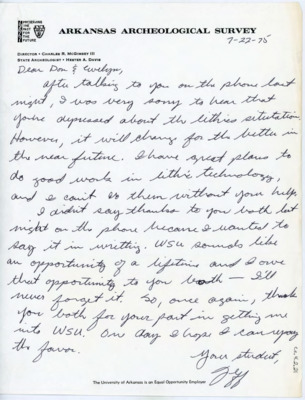 PRESERVING
THE PAST
FOR THE
FUTURE
ARKANSAS ARCHEOLOGICAL SURVEY
7-22-75
DIRECTOR • CHARLES R. McGIMSEY III
STATE ARCHEOLOGIST • HESTER A. DAVIS
Dear Don & Evelyn,
After talking to you on the phone last
night, I was very sorry to hear that
you're depressed about the lithics situtation.
However, it will change for the better in
the near future. I have great plans to
do good work in lithic technology,
and I can't do them without your help.
I didn't say thanks to you both last
night on the phone because I wanted to
say it in writting. WSU sounds like
an opportunity of a lifetime and I owe
that opportunity to you both — I'll
never forget it. So, once again, thank
you both for your part in getting me
into WSU. One day I hope I can repay
the favor.
Your student,
The University of Arkansas is an Equal Opportunity Employer